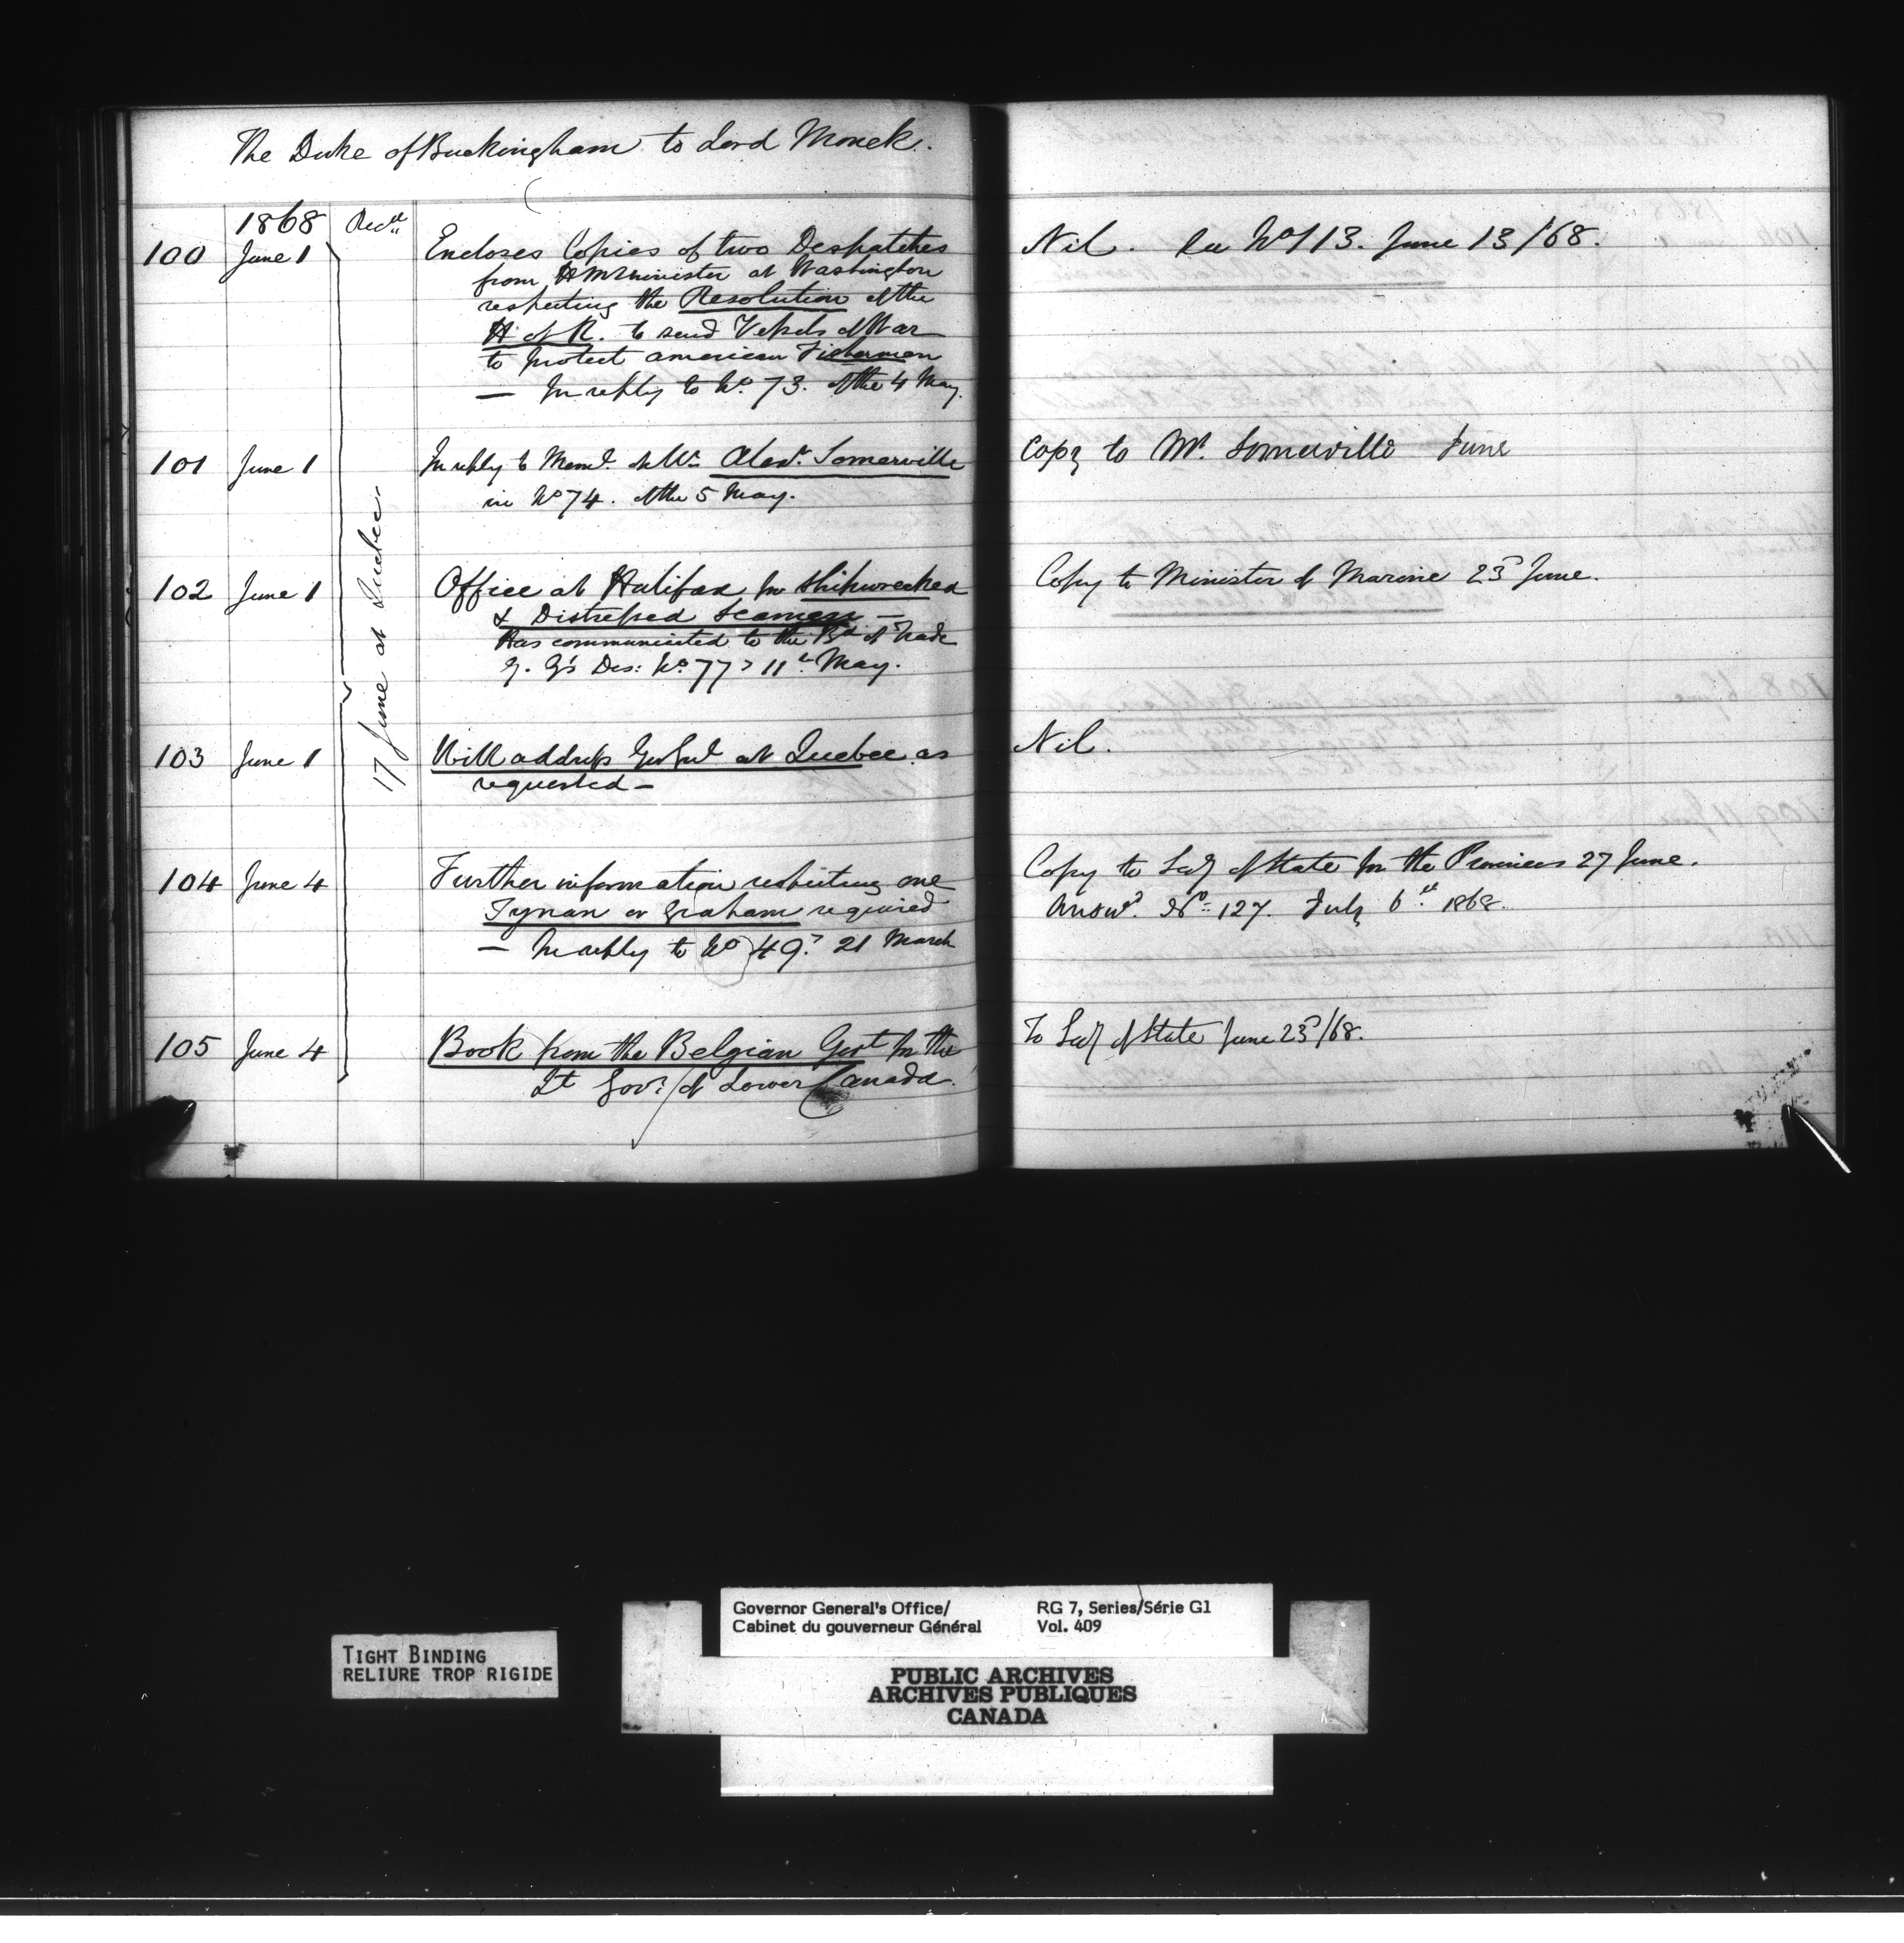 The Duke of Buckingham to Lord Monck.
1868 Recd
100 June 1 Encloses Copies of two Despatches
from H M Minister at Washington
respecting the Resolution of the
H of R. to send Vessels of War
to protect American Fishermen
— In reply to No. 73. of the 4 May.
Nil. See No 113. June 13/68.
101 June 1 In reply to Meml. of Mr. Alexr. Somerville
in No 74. of the 5 May.
Copy to Mr. Somerville June
17 June at Quebec
102 June 1 Office at Halifax for Shipwrecked
& Distressed Seamen —
Has communicated to the Bd of Trade
G. G's Des: No. 77, 11th May.
Copy to Minister of Marine 23d June.
103 June 1 Will address Gov Genl at Quebec as
requested —
Nil.
104 June 4 Further information respecting one
Tynan or Graham required
— In reply to No 49, 21 March
Copy to Secy of State for the Provinces 27 June.
Answd. No. 127. July 6th 1868.
105 June 4 Book from the Belgian Govt for the
Lt Govr. of Lower Canada.
To Secy of State June 23d/68.
TIGHT BINDING
RELIURE TROP RIGIDE
Governor General's Office/
Cabinet du gouverneur Général
RG 7, Series/Série G1
Vol. 409
PUBLIC ARCHIVES
ARCHIVES PUBLIQUES
CANADA